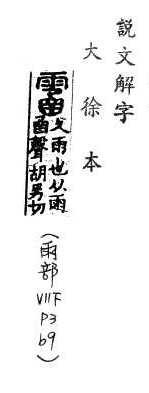 説文解字
大徐本
久雨也从雨
圅聲胡男切
（雨部 VII下 P3 b9）